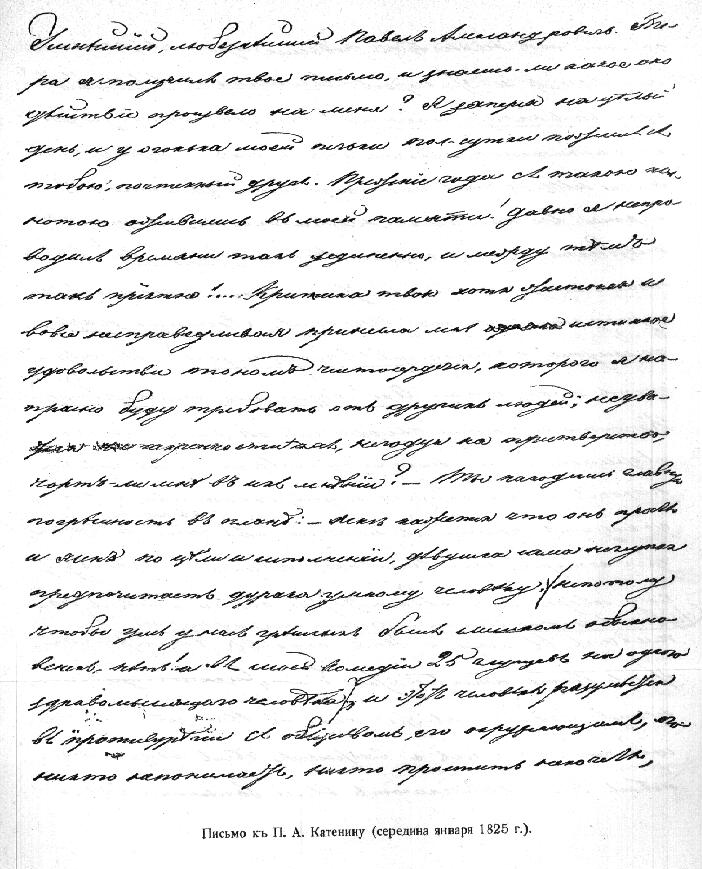 Умнѣйшій, любезнѣйшій Павелъ Александровичь. Вче-
ра я получилъ твое письмо, и знаешь-ли какое оно
дѣйствіе произвело на меня? Я заперся на цѣлый
день, и у огонька моей печьки пол-сутки пожилъ съ
тобою, почтенный другъ. Прежніе года съ такою пол-
нотою оживились въ моей памяти! давно я не про-
водилъ времени такъ уединенно, и между тѣмъ
такъ пріятно!.... Критика твоя хотя жестокая и
вовсе несправедливая принесла мнѣ истинное
удовольствіе тономъ чистосердечія, котораго я на-
прасно буду требовать отъ другихъ людей; не ува-
жая искренности ихъ, негодуя на притворство,
чортъ-ли мнѣ въ ихъ мнѣніи? – Ты находишь главную
погрѣшность въ планѣ: – мнѣ кажется что онъ простъ
и ясенъ по цѣли и исполненію, дѣвушка сама не глупая
предпочитаетъ дурака умному человѣку (не потому
чтобы умъ у насъ грѣшныхъ былъ слишкомъ обыкно-
вененъ, нѣтъ! а въ моей комедіи 25 глупцевъ на одного
здравомыслящаго человѣка), и этотъ человѣкъ разумѣется
въ противурѣчіи съ обществомъ, его окружающимъ, его
никто не понимаетъ, никто простить не хочетъ,
Письмо къ П. А. Катенину (середина января 1825 г.).